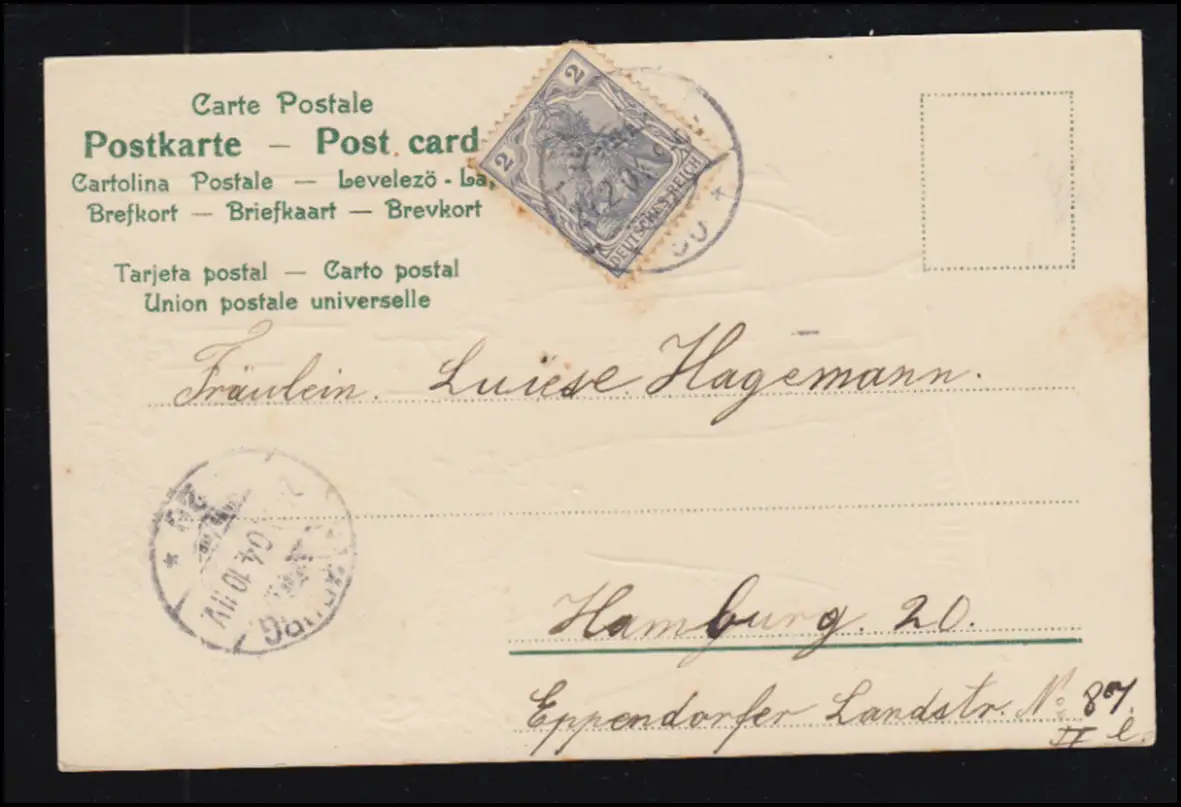 Carte Postale
Postkarte — Post card
Cartolina Postale — Levelezö - La
Brefkort — Briefkaart — Brevkort
Tarjeta postal — Carto postal
Union postale universelle
2
2
DEUTSCHES REICH
Fräulein. Luiese Hagemann.
Hamburg. 20.
Eppendorfer Landstr. No: 87.
II l.